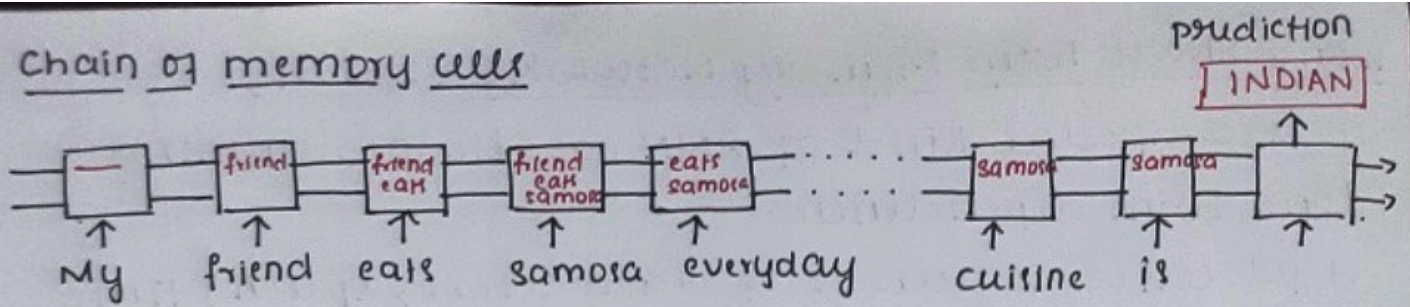 prudiction
Chain of memory cells
INDIAN
friend
friend
eats
friend
eats
samosa
eats
samosa
samosa
samosa
My friend eats samosa everyday cuisine is